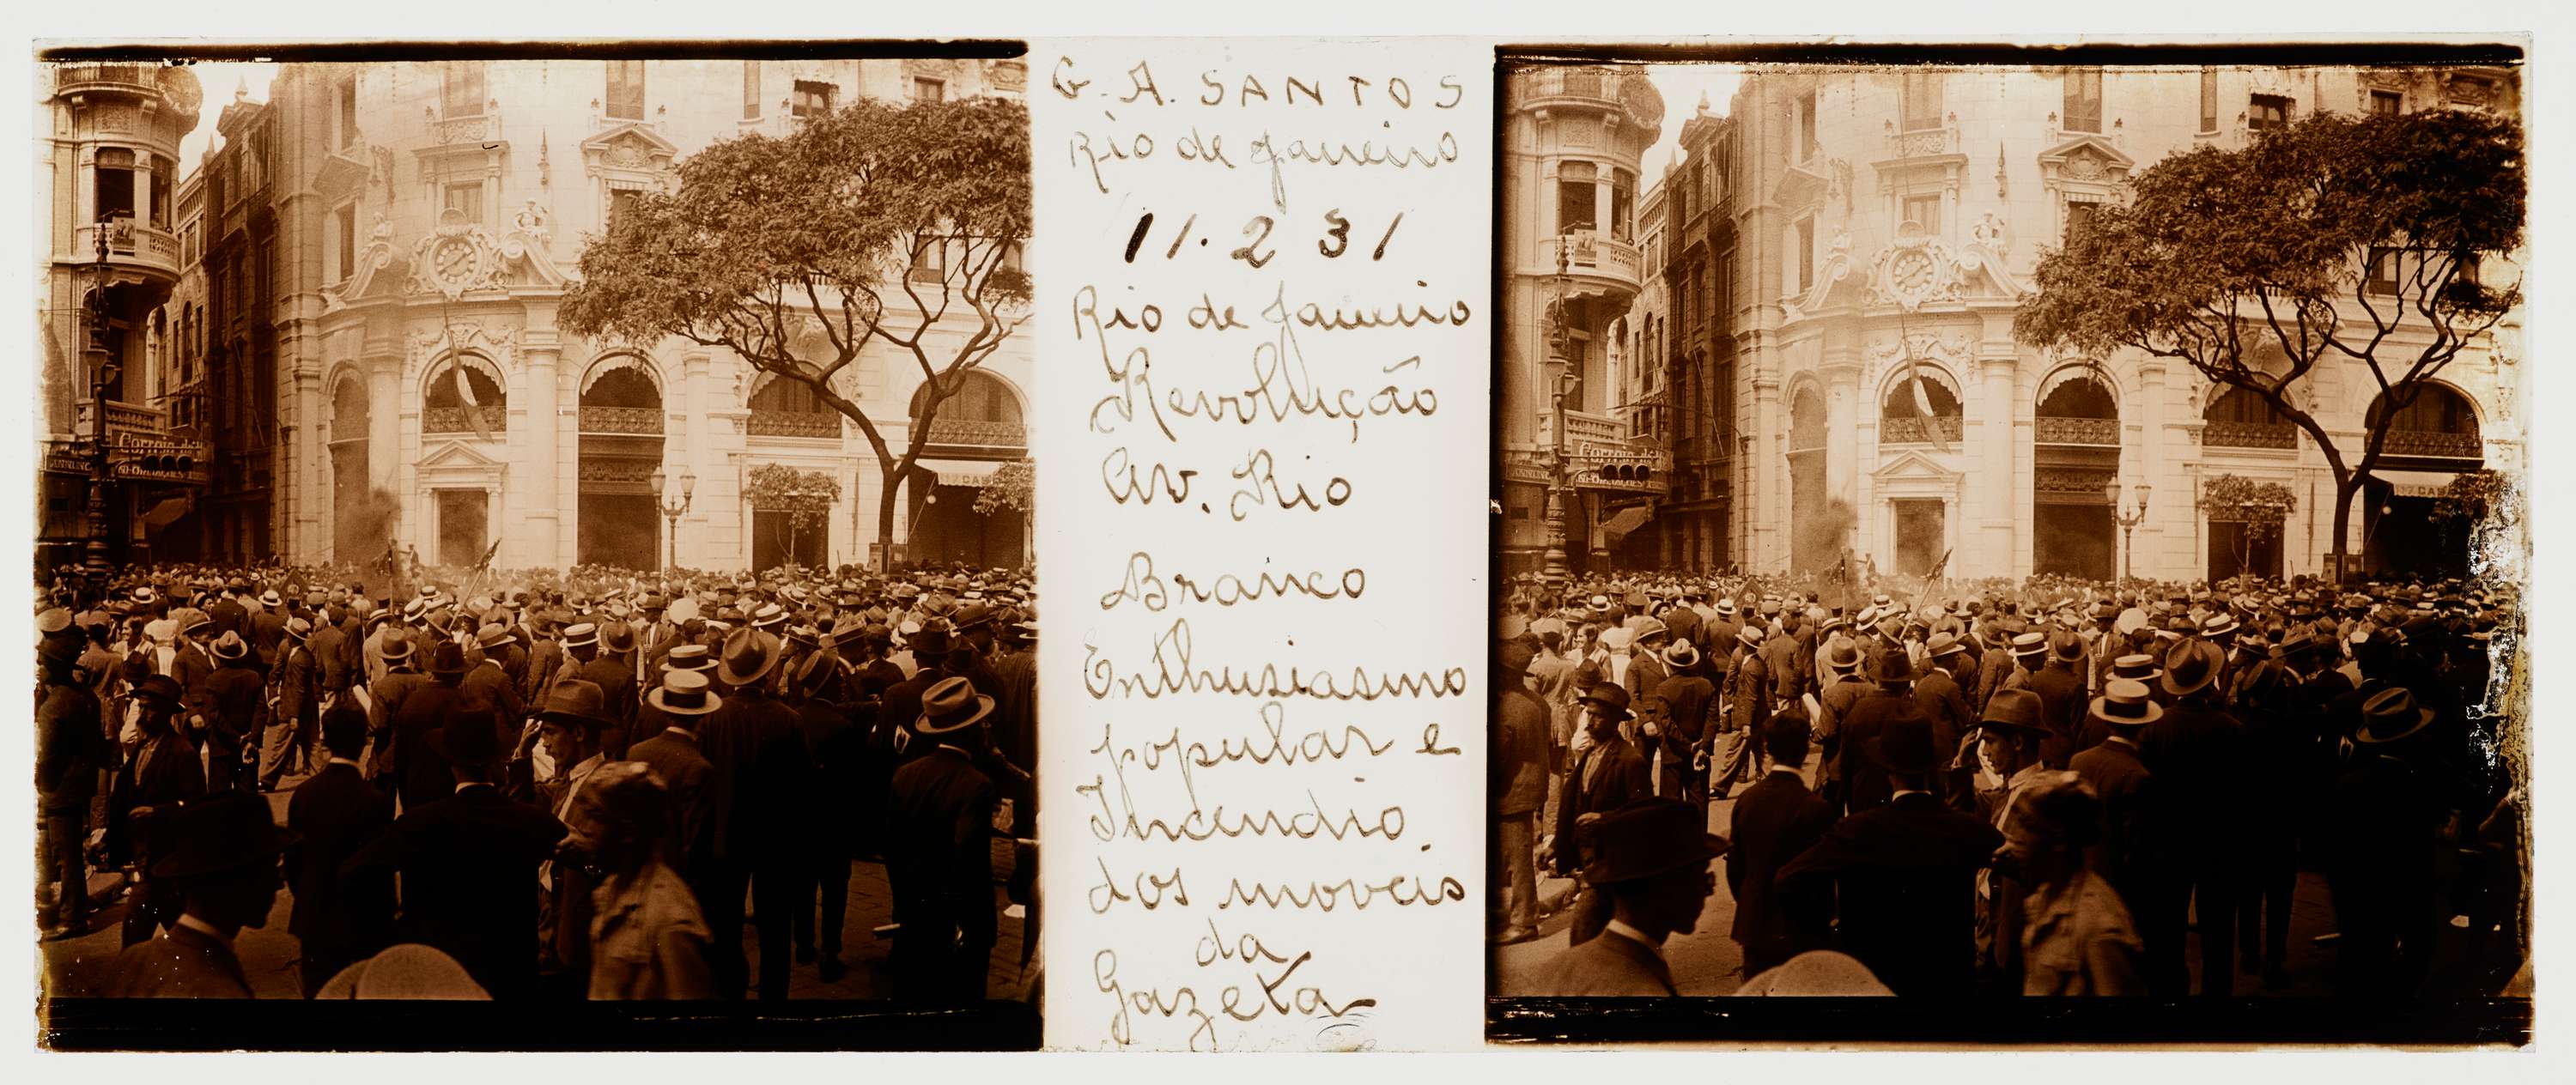 G. A. SANTOS
Rio de Janeiro
11. 2 31
Rio de Janeiro
Revolução
Av. Rio
Branco
Enthusiasmo
popular e
Incendio
dos moveis
da
Gazeta
Correio da